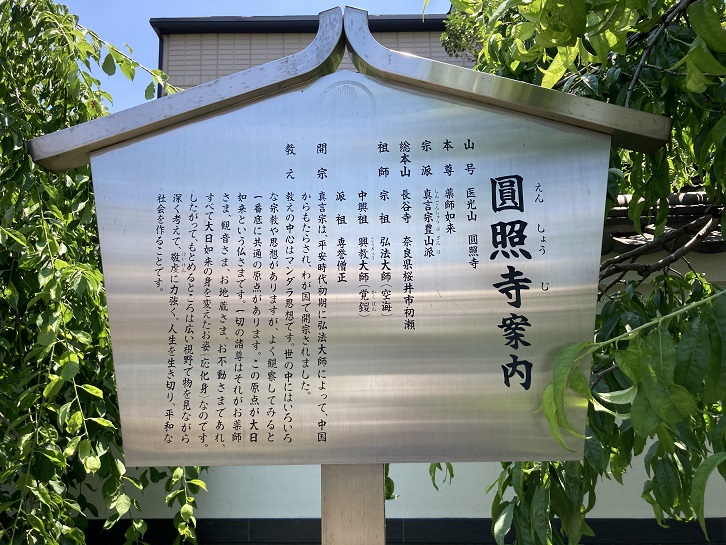 圓照寺案内
えんしょうじ
山号 医光山 圓照寺
本尊 薬師如来
宗派 真言宗豊山派
しんごんしゅうぶざんは
総本山 長谷寺 奈良県桜井市初瀬
祖師 宗祖 弘法大師(空海)
中興祖 興教大師(覚鑁)
こうぎょう かくばん
派祖 専誉僧正
開宗 真言宗は、平安時代初期に弘法大師によって、中国
からもたらされ、わが国で開宗されました。
教え 教えの中心はマンダラ思想です。世の中にはいろいろ
な宗教や思想がありますが、よく観察してみると
一番底に共通の原点があります。この原点が大日
如来という仏さまです。一切の諸尊はそれがお薬師
さま、観音さま、お地蔵さま、お不動さまであれ、
すべて大日如来の身を変えたお姿(応化身)なのです。
したがって、もとめるところは広い視野で物を見ながら
深く考えて、敬虔に力強く、人生を生き切り、平和な
社会を作ることです。